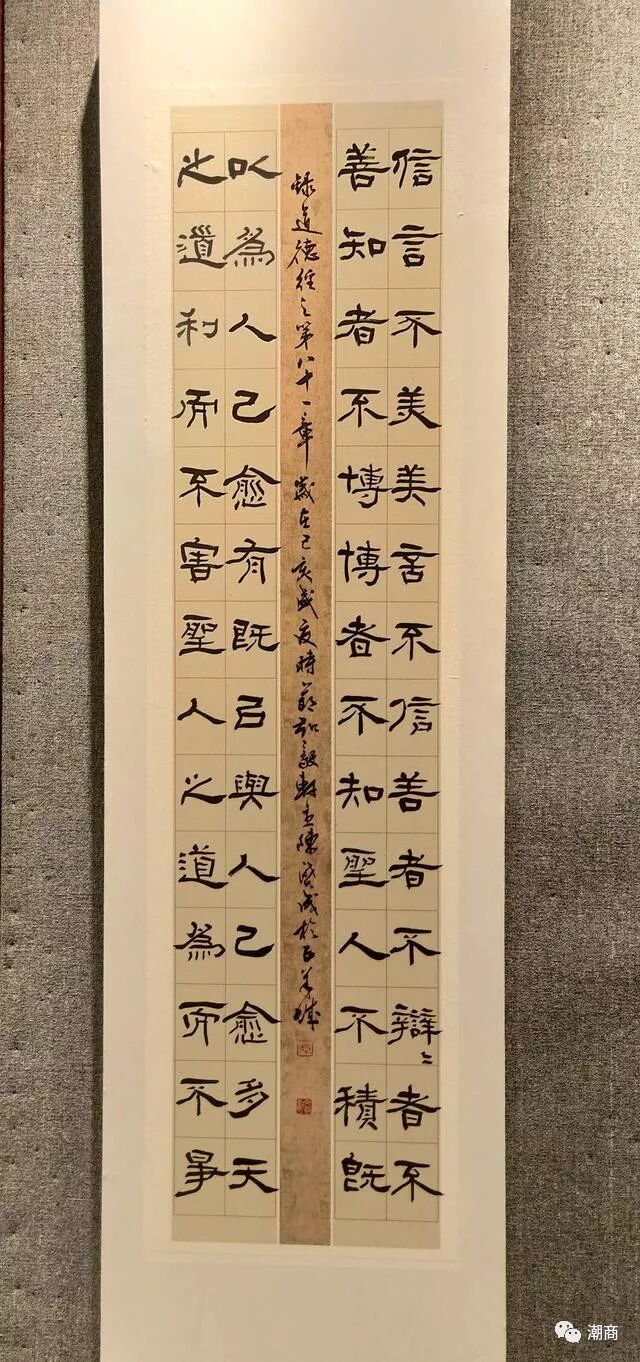 信言不美美言不信善者不辯〻者不
善知者不博博者不知聖人不積既
錄道德經之第八十一章歲在己亥盛夏時節弘毅軒主陳成於五羊城
以為人己愈有既以與人己愈多天
之道利而不害聖人之道為而不爭
潮商